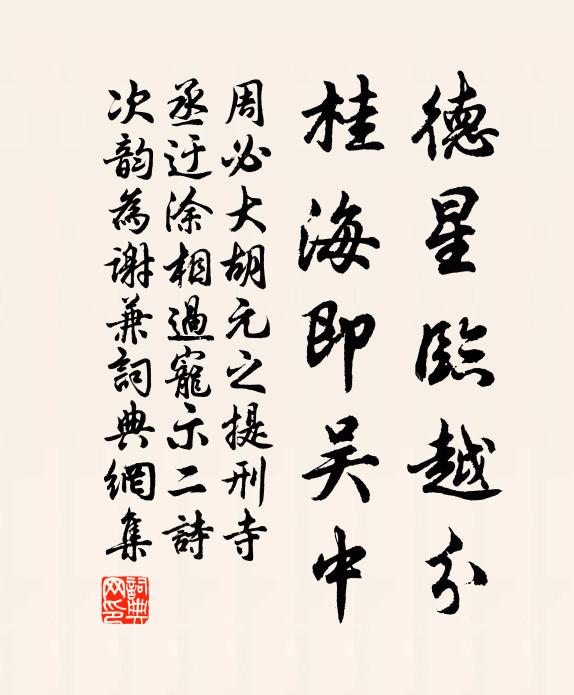 德星臨越分
桂海即吴中
周必大胡元之提刑寺
丞迂涂相過寵示二詩
次韵為謝兼詞典網集
詞典
网印